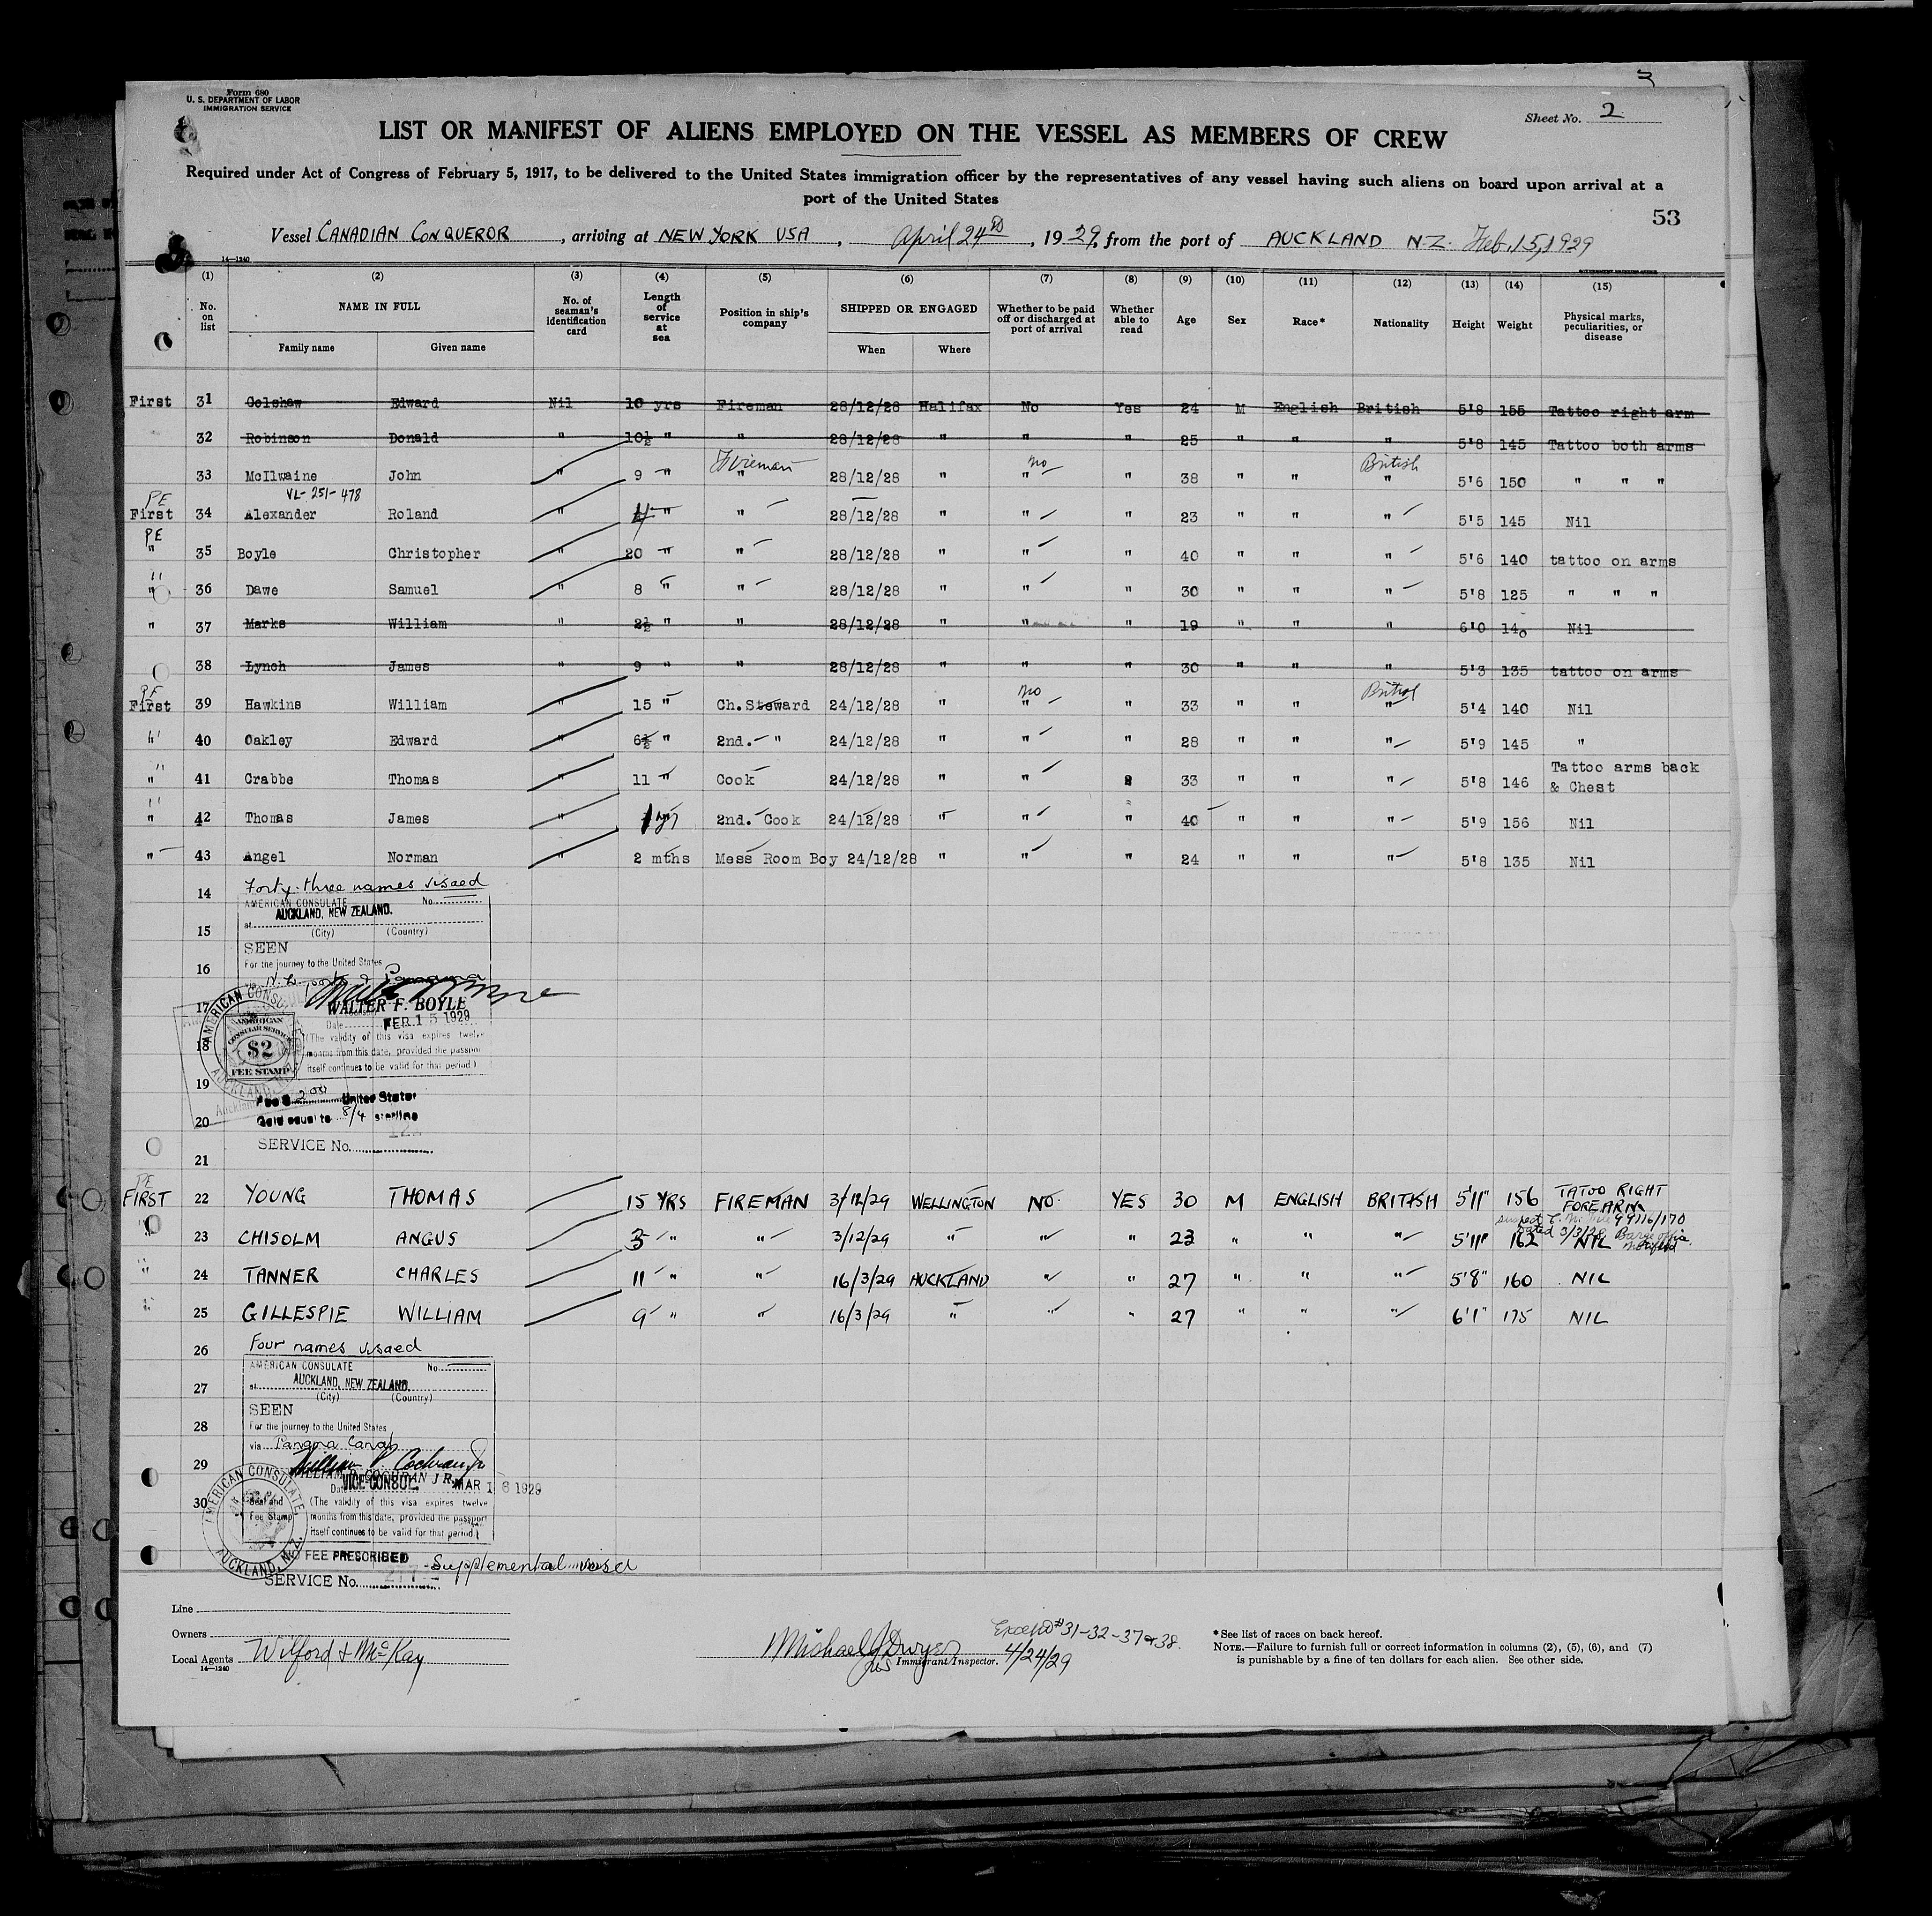 Form 680
U. S. DEPARTMENT OF LABOR
IMMIGRATION SERVICE
Sheet No. 2
LIST OR MANIFEST OF ALIENS EMPLOYED ON THE VESSEL AS MEMBERS OF CREW
Required under Act of Congress of February 5, 1917, to be delivered to the United States immigration officer by the representatives of any vessel having such aliens on board upon arrival at a
port of the United States
53
Vessel CANADIAN CONQUEROR, arriving at NEW YORK USA, April 24th, 1929, from the port of AUCKLAND N.Z. Feb. 15, 1929
14—1240
(1) (2) (3) (4) (5) (6) (7) (8) (9) (10) (11) (12) (13) (14) (15)
No. on list NAME IN FULL No. of seaman's identification card Length of service at sea Position in ship's company SHIPPED OR ENGAGED Whether to be paid off or discharged at port of arrival Whether able to read Age Sex Race* Nationality Height Weight Physical marks, peculiarities, or disease
Family name Given name When Where
First 31 Colshaw Edward Nil 10 yrs Fireman 28/12/28 Halifax No Yes 24 M English British 5'8 155 Tattoo right arm
32 Robinson Donald " 10½ " " 28/12/28 " " " 25 " " " 5'8 145 Tattoo both arms
Fireman no British
33 McIlwaine John " 9 " " 28/12/28 " " " 38 " " " 5'6 150 " " "
VL-251-478
PE
First 34 Alexander Roland " 4 " " 28/12/28 " " " 23 " " " 5'5 145 Nil
PE
" 35 Boyle Christopher " 20 " " 28/12/28 " " " 40 " " " 5'6 140 tattoo on arms
" 36 Dawe Samuel " 8 " " 28/12/28 " " " 30 " " " 5'8 125 " " "
" 37 Marks William " 2½ " " 28/12/28 " " " 19 " " " 6'0 140 Nil
38 Lynch James " 9 " " 28/12/28 " " " 30 " " " 5'3 135 tattoo on arms
PE no British
First 39 Hawkins William " 15 " Ch.Steward 24/12/28 " " " 33 " " " 5'4 140 Nil
" 40 Oakley Edward " 6½ " 2nd. " 24/12/28 " " " 28 " " " 5'9 145 "
" 41 Crabbe Thomas " 11 " Cook 24/12/28 " " " 33 " " " 5'8 146 Tattoo arms back
& Chest
" 42 Thomas James " 1 yr 2nd. Cook 24/12/28 " " " 40 " " " 5'9 156 Nil
" 43 Angel Norman " 2 mths Mess Room Boy 24/12/28 " " " 24 " " " 5'8 135 Nil
14 Forty-three names visaed
AMERICAN CONSULATE No.
AUCKLAND, NEW ZEALAND.
15 at (City) (Country)
SEEN
16 For the journey to the United States
Panama
17 WALTER F. BOYLE
Date FEB 15 1929
18 (The validity of this visa expires twelve
months from this date, provided the passport
itself continues to be valid for that period)
AMERICAN CONSULAR SERVICE $2 FEE STAMP
19
Fee $ 2.00 United States
20 Gold equal to 8/4 sterling
SERVICE No.
21
PE
FIRST 22 YOUNG THOMAS 15 YRS FIREMAN 3/12/29 WELLINGTON NO. YES 30 M ENGLISH BRITISH 5'11" 156 TATOO RIGHT
FOREARM
suspect
23 CHISOLM ANGUS 3 " " 3/12/29 " " " 23 " " " 5'11" 162 NIL
24 TANNER CHARLES 11 " " 16/3/29 AUCKLAND " " 27 " " " 5'8" 160 NIL
25 GILLESPIE WILLIAM 9 " " 16/3/29 " " " 27 " " " 6'1" 175 NIL
26 Four names visaed
AMERICAN CONSULATE No.
27 at AUCKLAND, NEW ZEALAND.
(City) (Country)
SEEN
28 For the journey to the United States
via Panama Canal
29 William P. Cochran Jr
WILLIAM P. COCHRAN JR.
VICE CONSUL.
Date MAR 18 1929
30 (The validity of this visa expires twelve
months from this date, provided the passport
itself continues to be valid for that period)
AMERICAN CONSULATE AUCKLAND, N.Z.
Seal and
Fee Stamp
NO FEE PRESCRIBED Supplemental visa
SERVICE No.
Line
Owners
Local Agents Wilford & McKay
14—1240
Michael J Dwyer
Immigrant Inspector.
Except #31-32-37&38.
4/24/29
*See list of races on back hereof.
NOTE.—Failure to furnish full or correct information in columns (2), (5), (6), and (7)
is punishable by a fine of ten dollars for each alien. See other side.